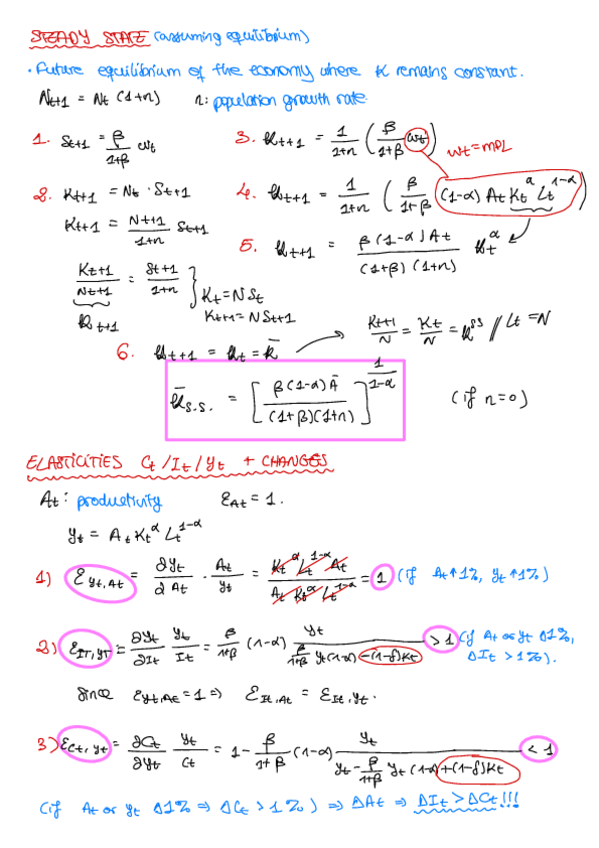 STEADY STATE (assuming equilibrium)
· Future equilibrium of the economy where K remains constant.
N_{t+1} = N_t (1+n)    n: population growth rate.
1. S_{t+1} = β/(1+β) w_t
2. K_{t+1} = N_t · S_{t+1}
K_{t+1} = N_{t+1}/(1+n) S_{t+1}
K_{t+1}/N_{t+1} = S_{t+1}/(1+n) } K_t = N S_t
K_{t+1} = N S_{t+1}
k_{t+1}
3. k_{t+1} = 1/(1+n) (β/(1+β) w_t)    w_t = MPL
4. k_{t+1} = 1/(1+n) (β/(1+β) (1-α) A_t K_t^α L_t^{1-α})
5. k_{t+1} = β(1-α)A_t / (1+β)(1+n) k_t^α
6. k_{t+1} = k_t = k̄ → K_{t+1}/N = K_t/N = k^{ss} // L_t = N
k̄_{s.s.} = [β(1-α)Ā / (1+β)(1+n)]^{1/(1-α)}    (if n=0)
ELASTICITIES C_t / I_t / Y_t + CHANGES
A_t: productivity    ε_{At} = 1.
y_t = A_t K_t^α L_t^{1-α}
1) ε_{yt,At} = ∂y_t/∂A_t · A_t/y_t = K_t^α L_t^{1-α} A_t / A_t K_t^α L_t^{1-α} = 1 (if A_t ↑ 1%, y_t ↑ 1%)
2) ε_{It,yt} = ∂y_t/∂I_t y_t/I_t = β/(1+β) (1-α) y_t / (β/(1+β) y_t(1-α) -(1-δ)k_t) > 1 (if A_t or y_t Δ1%,
ΔI_t > 1%).
Since ε_{yt,At} = 1 ⇒ ε_{It,At} = ε_{It,yt}.
3) ε_{Ct,yt} = ∂C_t/∂y_t y_t/C_t = 1 - β/(1+β) (1-α) y_t / (y_t - β/(1+β) y_t (1-α) +(1-δ)k_t) < 1
(if A_t or y_t Δ1% ⇒ ΔC_t > 1%) ⇒ ΔA_t ⇒ ΔI_t > ΔC_t!!!